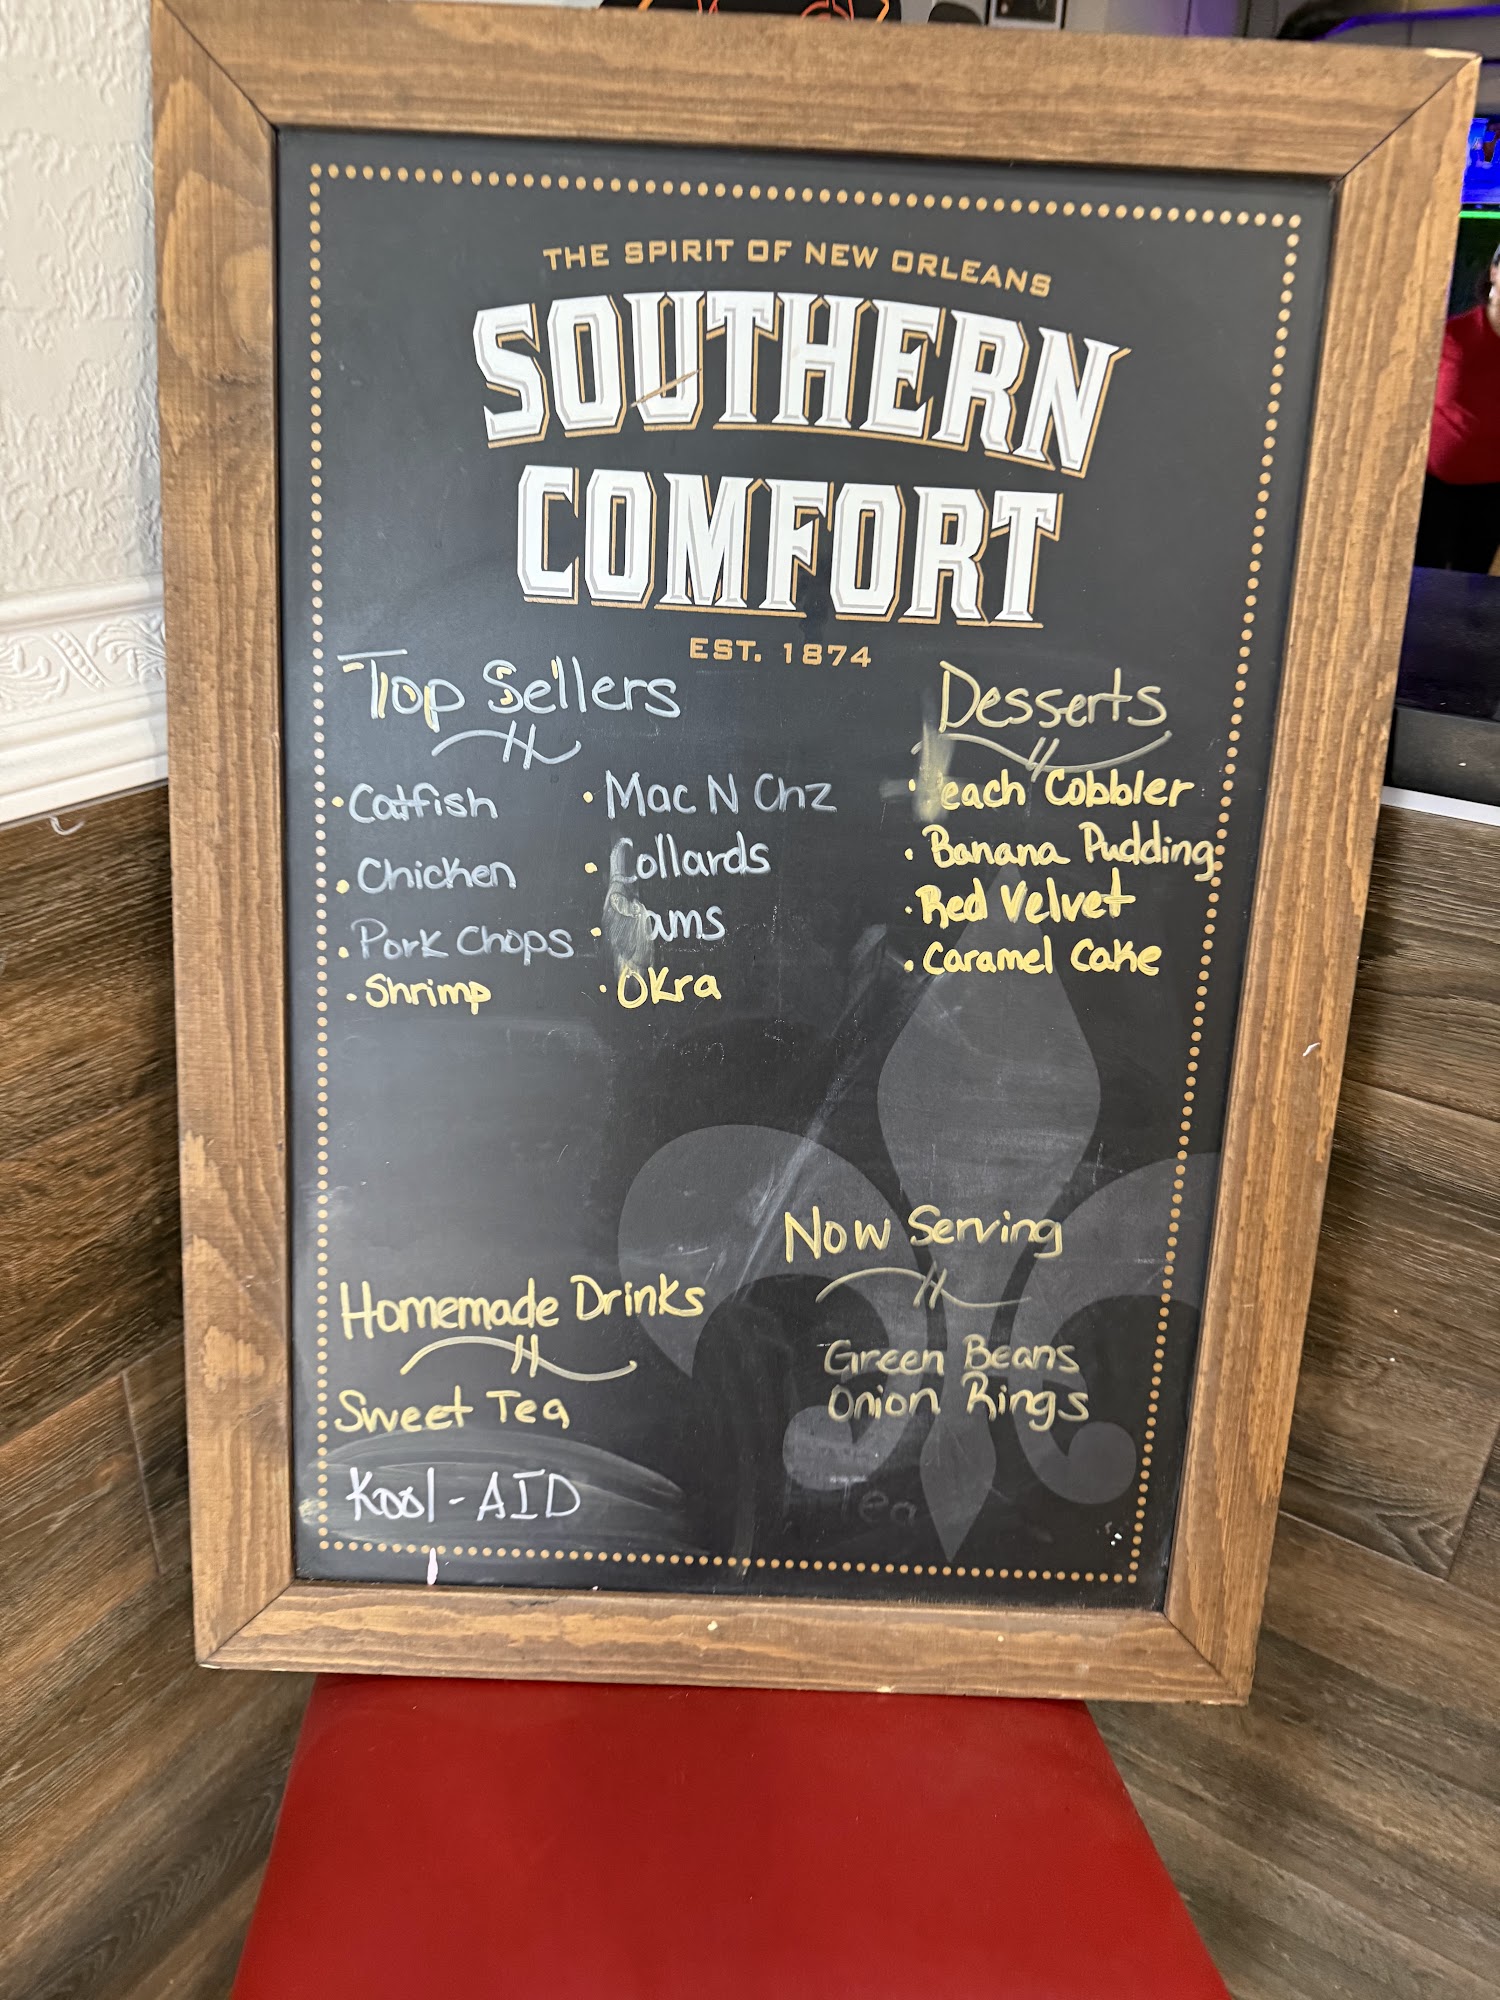 THE SPIRIT OF NEW ORLEANS
SOUTHERN
COMFORT
EST. 1874
Top Sellers
• Catfish
• Chicken
• Pork Chops
• Shrimp
• Mac N Chz
• Collards
• ams
• Okra
Desserts
• each Cobbler
• Banana Pudding
• Red Velvet
• Caramel Cake
Now Serving
Green Beans
Onion Rings
Homemade Drinks
Sweet Tea
Kool-AID
Tea